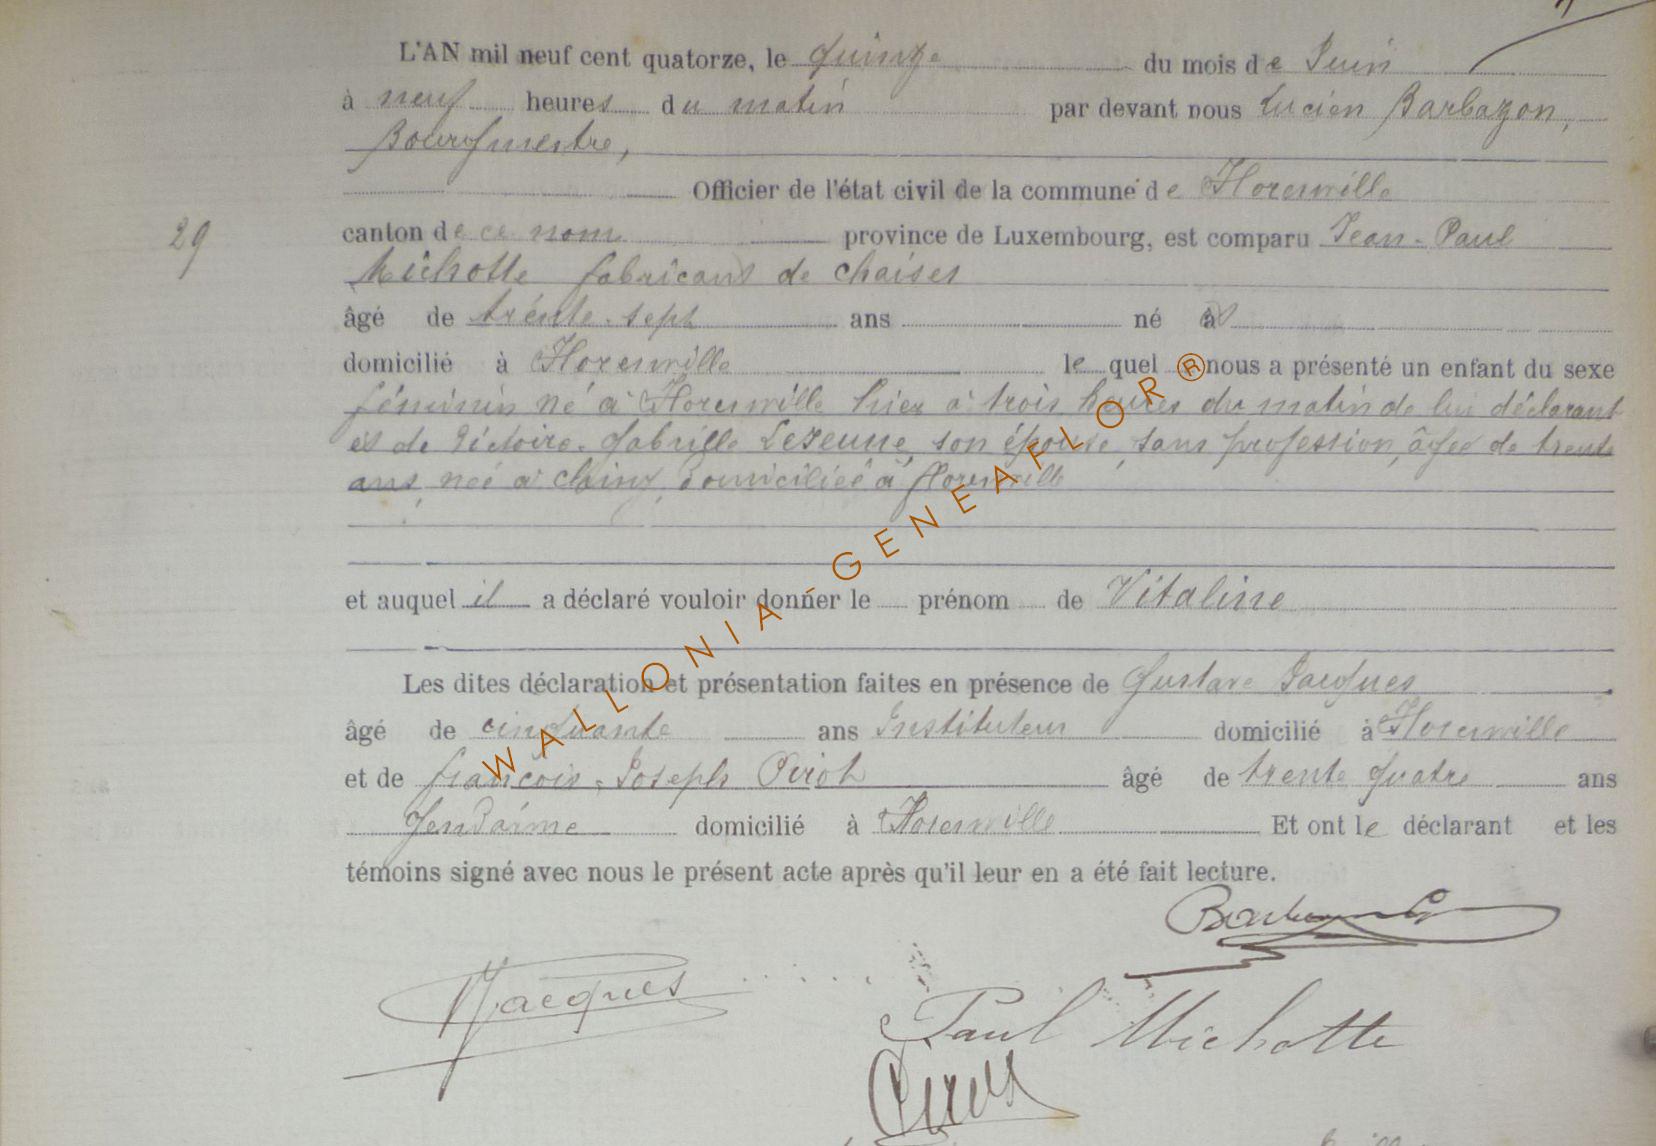 L'AN mil neuf cent quatorze, le quinze du mois de Juin
à neuf heures du matin par devant nous Lucien Barbazon,
Bourgmestre,
Officier de l'état civil de la commune de Florenville
29
canton de ce nom province de Luxembourg, est comparu Jean-Paul
Michotte fabricant de chaises
âgé de trente-sept ans né à
domicilié à Florenville lequel nous a présenté un enfant du sexe
féminin né à Florenville hier à trois heures du matin de lui déclarant
et de Victoire-Gabrielle Lejeune, son épouse, sans profession, âgée de trente
ans, née à domiciliée à Florenville
et auquel il a déclaré vouloir donner le prénom de Vitaline
Les dites déclaration et présentation faites en présence de Gustave Jacques
âgé de cinquante ans Instituteur domicilié à Florenville
et de françois-Joseph Pirot âgé de trente quatre ans
Gendarme domicilié à Florenville Et ont le déclarant et les
témoins signé avec nous le présent acte après qu'il leur en a été fait lecture.
Jacques
Paul Michotte
Pirot
WALLONIA-GENEAFLOR®